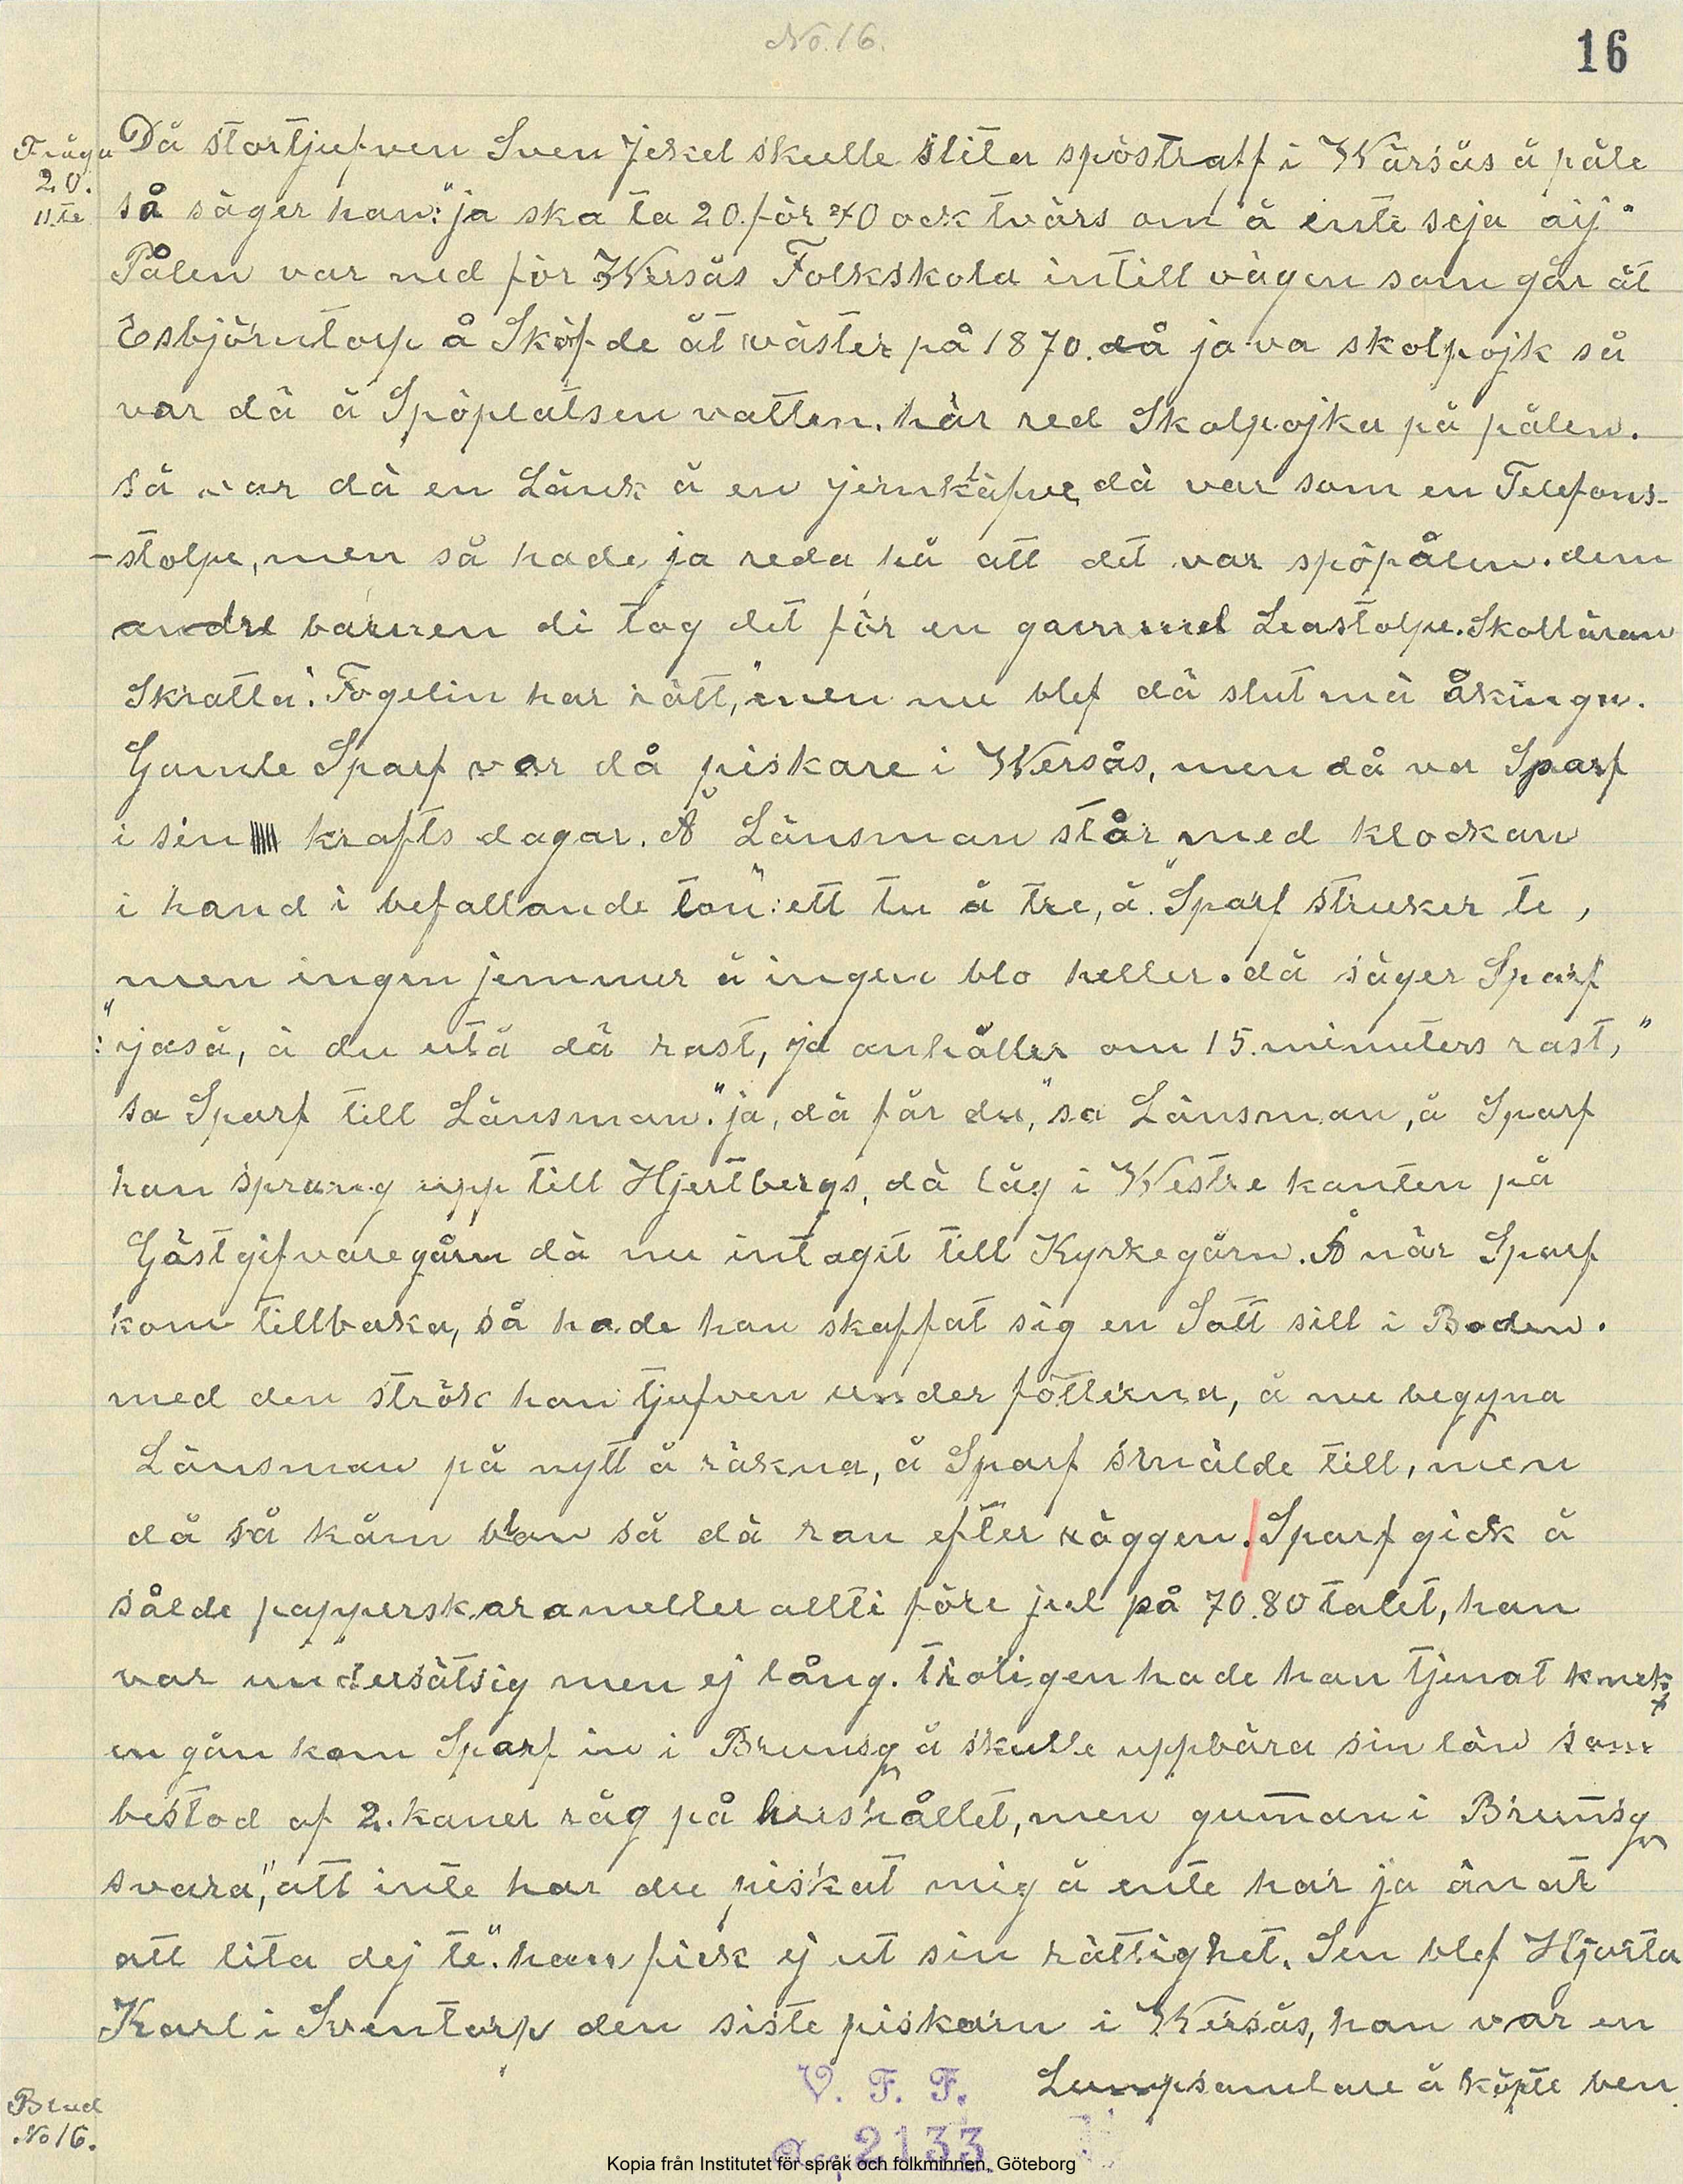 No. 16.
16
Fråga
20.
11.te
Då stortjufven Sven Jekel skulle slita spöstraff i Wärsås å påle
så säger han: "ja ska ta 20. för 40 ock tvärs om å inte seja aij"
Pålen var ned för Wersås Folkskola intill vägen som går åt
Esbjörntorp å Sköfde åt wäster på 1870. då ja va skolpojk så
var dä å Spöplatsen vatten. här red Skolpojka på pålen.
så var dä en Länk å en jernklåfve dä var som en Telefons-
-stolpe, men så hade ja reda på att det var spöpålen. dem
andre barnen di tog det för en gammel Leastolpe. Skolläran
Skratta: "Fogelin har rätt," men nu blef dä slut mä åkinga.
Gamle Sparf var då piskare i Wersås, men då va Sparf
i sin krafts dagar. Å Länsman står med klockan
i hand i befallande ton: "ett tu å tre, å" Sparf struker te,
men ingen jemmer å ingen blo heller. då säger Sparf
: "jaså, ä du utå dä rast, ja anhåller om 15. minuters rast,"
sa Sparf till Länsman. "ja, dä får du," sa Länsman, å Sparf
han sprang upp till Hjertbergs, dä låg i Westre kanten på
Gästgifvaregårn dä nu intagit till Kyrkegårn. Å när Sparf
kom tillbaka, så hade han skaffat sig en Salt sill i Boden.
med den strök han tjufven under fötterna, å nu begyna
Länsman på nytt å räkna, å Sparf smälde till, men
då så kåm blon så dä ran efter räggen. Sparf gick å
sålde papperskarameller allti före jul på 70.80 talet, han
var undersätsig men ej lång. troligen hade han tjenat knekt
en gån kom Sparf in i Brunsg å skulle uppbära sin lön som
bestod af 2. kaner råg på hushållet, men guman i Brunsg
svara, "att inte har du piskat mig å ente har ja änat
att lita dej te". han fick ej ut sin rättighet. Sen blef Hjorta
Karl i Sventorp den siste piskarn i Wersås, han var en
Lumpsamlare å köpte ben
Blad
No 16.
V. F. F.
Acc 2133
Kopia från Institutet för språk och folkminnen, Göteborg